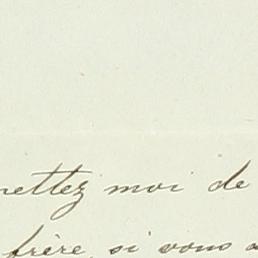 nettez moi de
frère, si vous